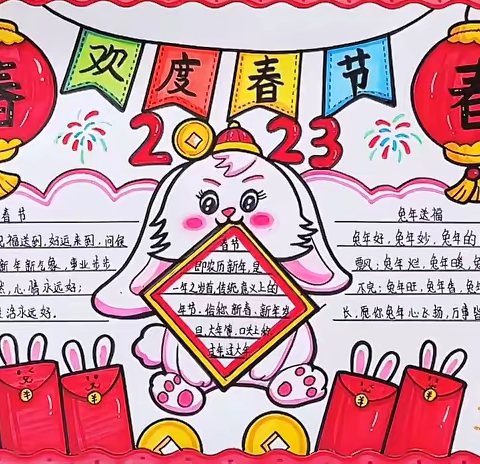 欢度春节
春
春
2023
春节
祝福送到,好运来到,问候
新年新气象,事业步步
心情永远好;
永远好.
春节
即农历新年,是
一年之岁首,传统意义上的
年节.俗称新春、新年岁
旦、大年等,口头上的
过年过大年
兔年送福
兔年好,兔年妙,兔年的
飘;兔年烂,兔年暖,兔
不完;兔年旺,兔年吉,兔年
长,愿你兔年心飞扬,万事皆